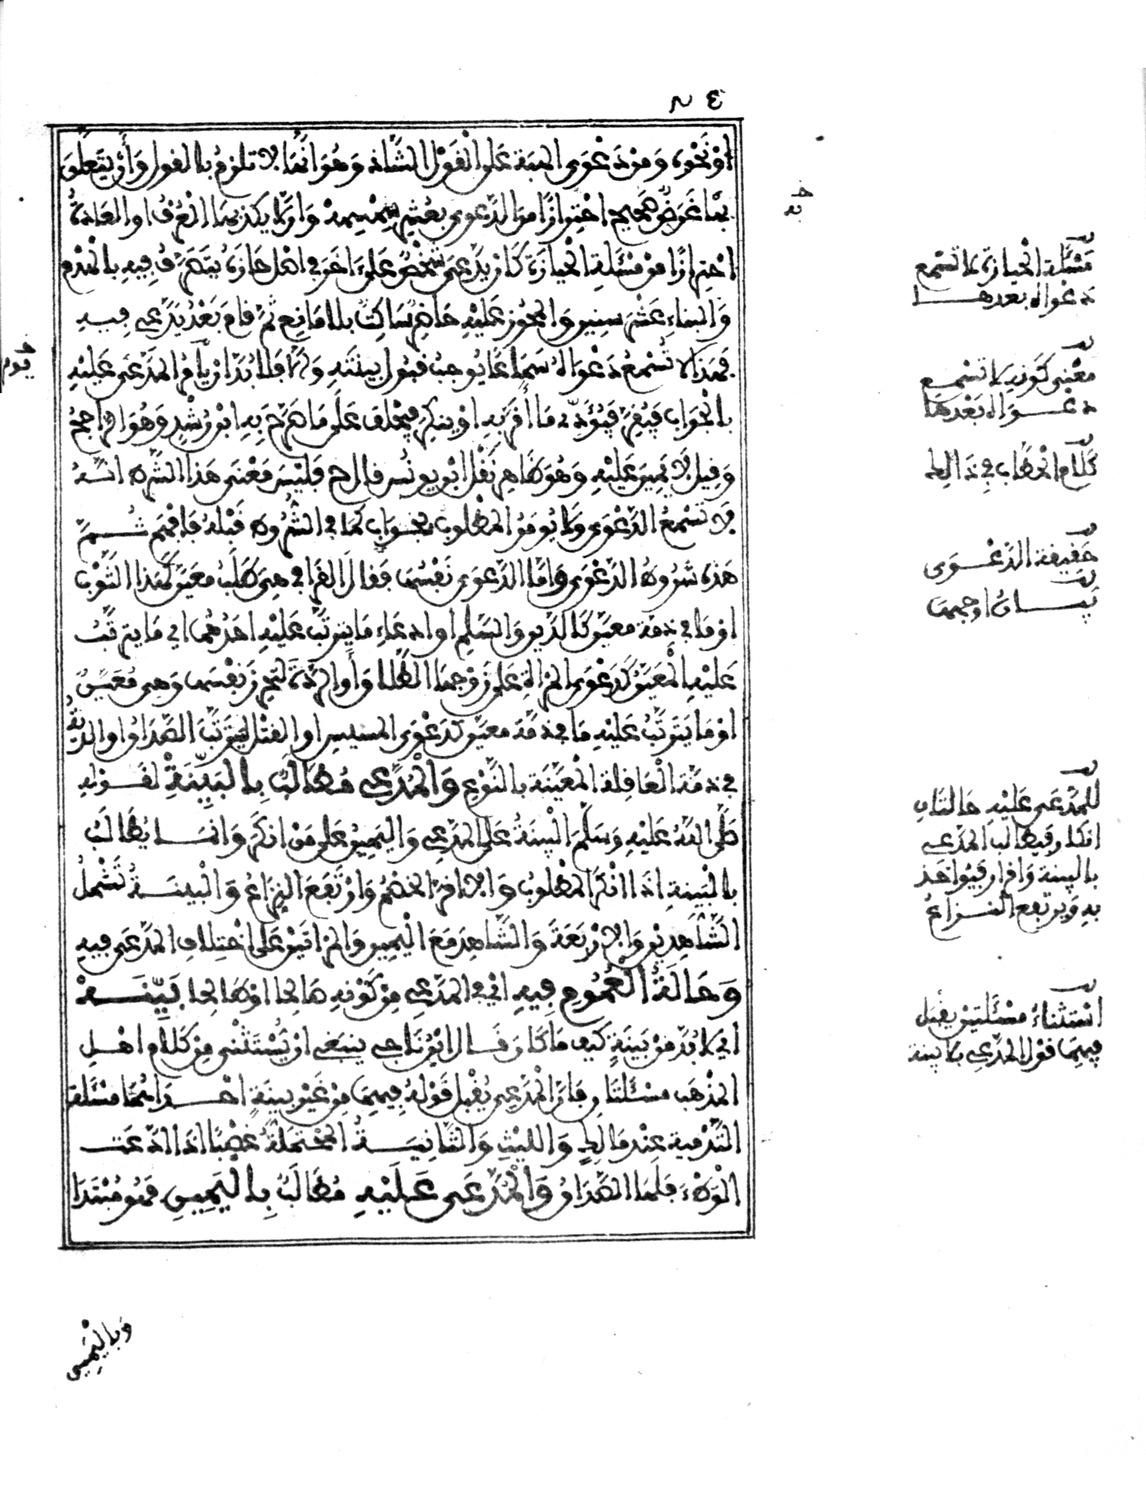 او نحوه ومن دعوى الهبة على القول الشاذ وهو انها لا تلزم بالقول وأن يتعلق
بها غرض صحيح احترازا من الدعوى بعشر سمسمة وان لا يكذبها العرف او العادة
احترازا من مسئلة الحيازة كان يدعى شخص على ءاخر في اهل حازه يتصرف فيه بالهدم
والبناء عشر سنين والمحوز عليه حاضر ساكت بلا مانع ثم قام بعد يدعى فيه
فهذا لا تسمع دعواه سماعا يوجب قبول بينته والا فلا بد ان يأمر المدعى عليه
بالجواب فيقر فيؤخذ بما أقر به او ينكر فيحلف على ما صرح به ابن رشد وهو الراجح
وقيل لا يمين عليه وهو ظاهر نقل ابن يونس قال الخ فليس معنى هذا الشرط انه
لا تسمع الدعوى ولا يومر المطلوب بجواب كما في الشروط قبله فافهم ثم
هذه شروط الدعوى واما الدعوى نفسها فقال القرافي هي طلب معين كهذا الثوب
او ما في ذمة معين كالدين والسلم او ادعاء ما يترتب عليه احدهما اي ما يترتب
عليه المعين كدعوى المراة على زوجها الطلاق أو الردة لتحوز نفسها وهي معين
او ما يترتب عليه ما في ذمة معين كدعوى المسيس او القتل ليترتب الصداق او الدية
في ذمة العاقلة المعينة بالنوع والمدعى مطالب بالبينة لقوله
صلى الله عليه وسلم البينة على المدعى واليمين على من انكر وانما يطالب
بالبينة اذا انكر المطلوب والا اقر الخصم وارتفع النزاع والبينة تشمل
الشاهدين والاربعة والشاهد مع اليمين والمراتين على اختلاف المدعى فيه
وحالة العموم فيه اي في المدعى من كونه صالحا او طالحا بينه
اي لا بد من بينة كيف ما كان قال ابن ناجي ينبغي ان يستثنى من كلام اهل
المذهب مسئلتان فان المدعى يقبل قوله فيهما من غير بينة احداهما مسئلة
التدمية عند مالك والليث والثانية المحتملة غصبا اذا ادعت
الوطء فلها الصداق والمدعى عليه مطالب باليمين فهو مبتدا
وباليمين
مسئلة الحيازة لا تسمع
دعواه بعدها
معنى كونه لا تسمع
دعواه بعدها
كلام الحطاب في ذالك
حقيقة الدعوى
بيان اوجهها
للمدعى عليه حالتان
انكار فيطالب المدعى
بالبينة واقرار فيؤاخذ
به ويرتفع النزاع
استثناء مسئلتين يقبل
فيهما قول المدعى بلا بينة